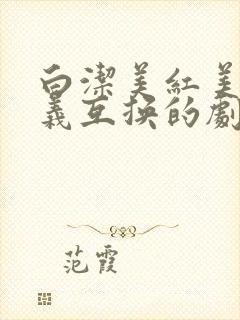 白潔美紅美
義互换的劇
范霞